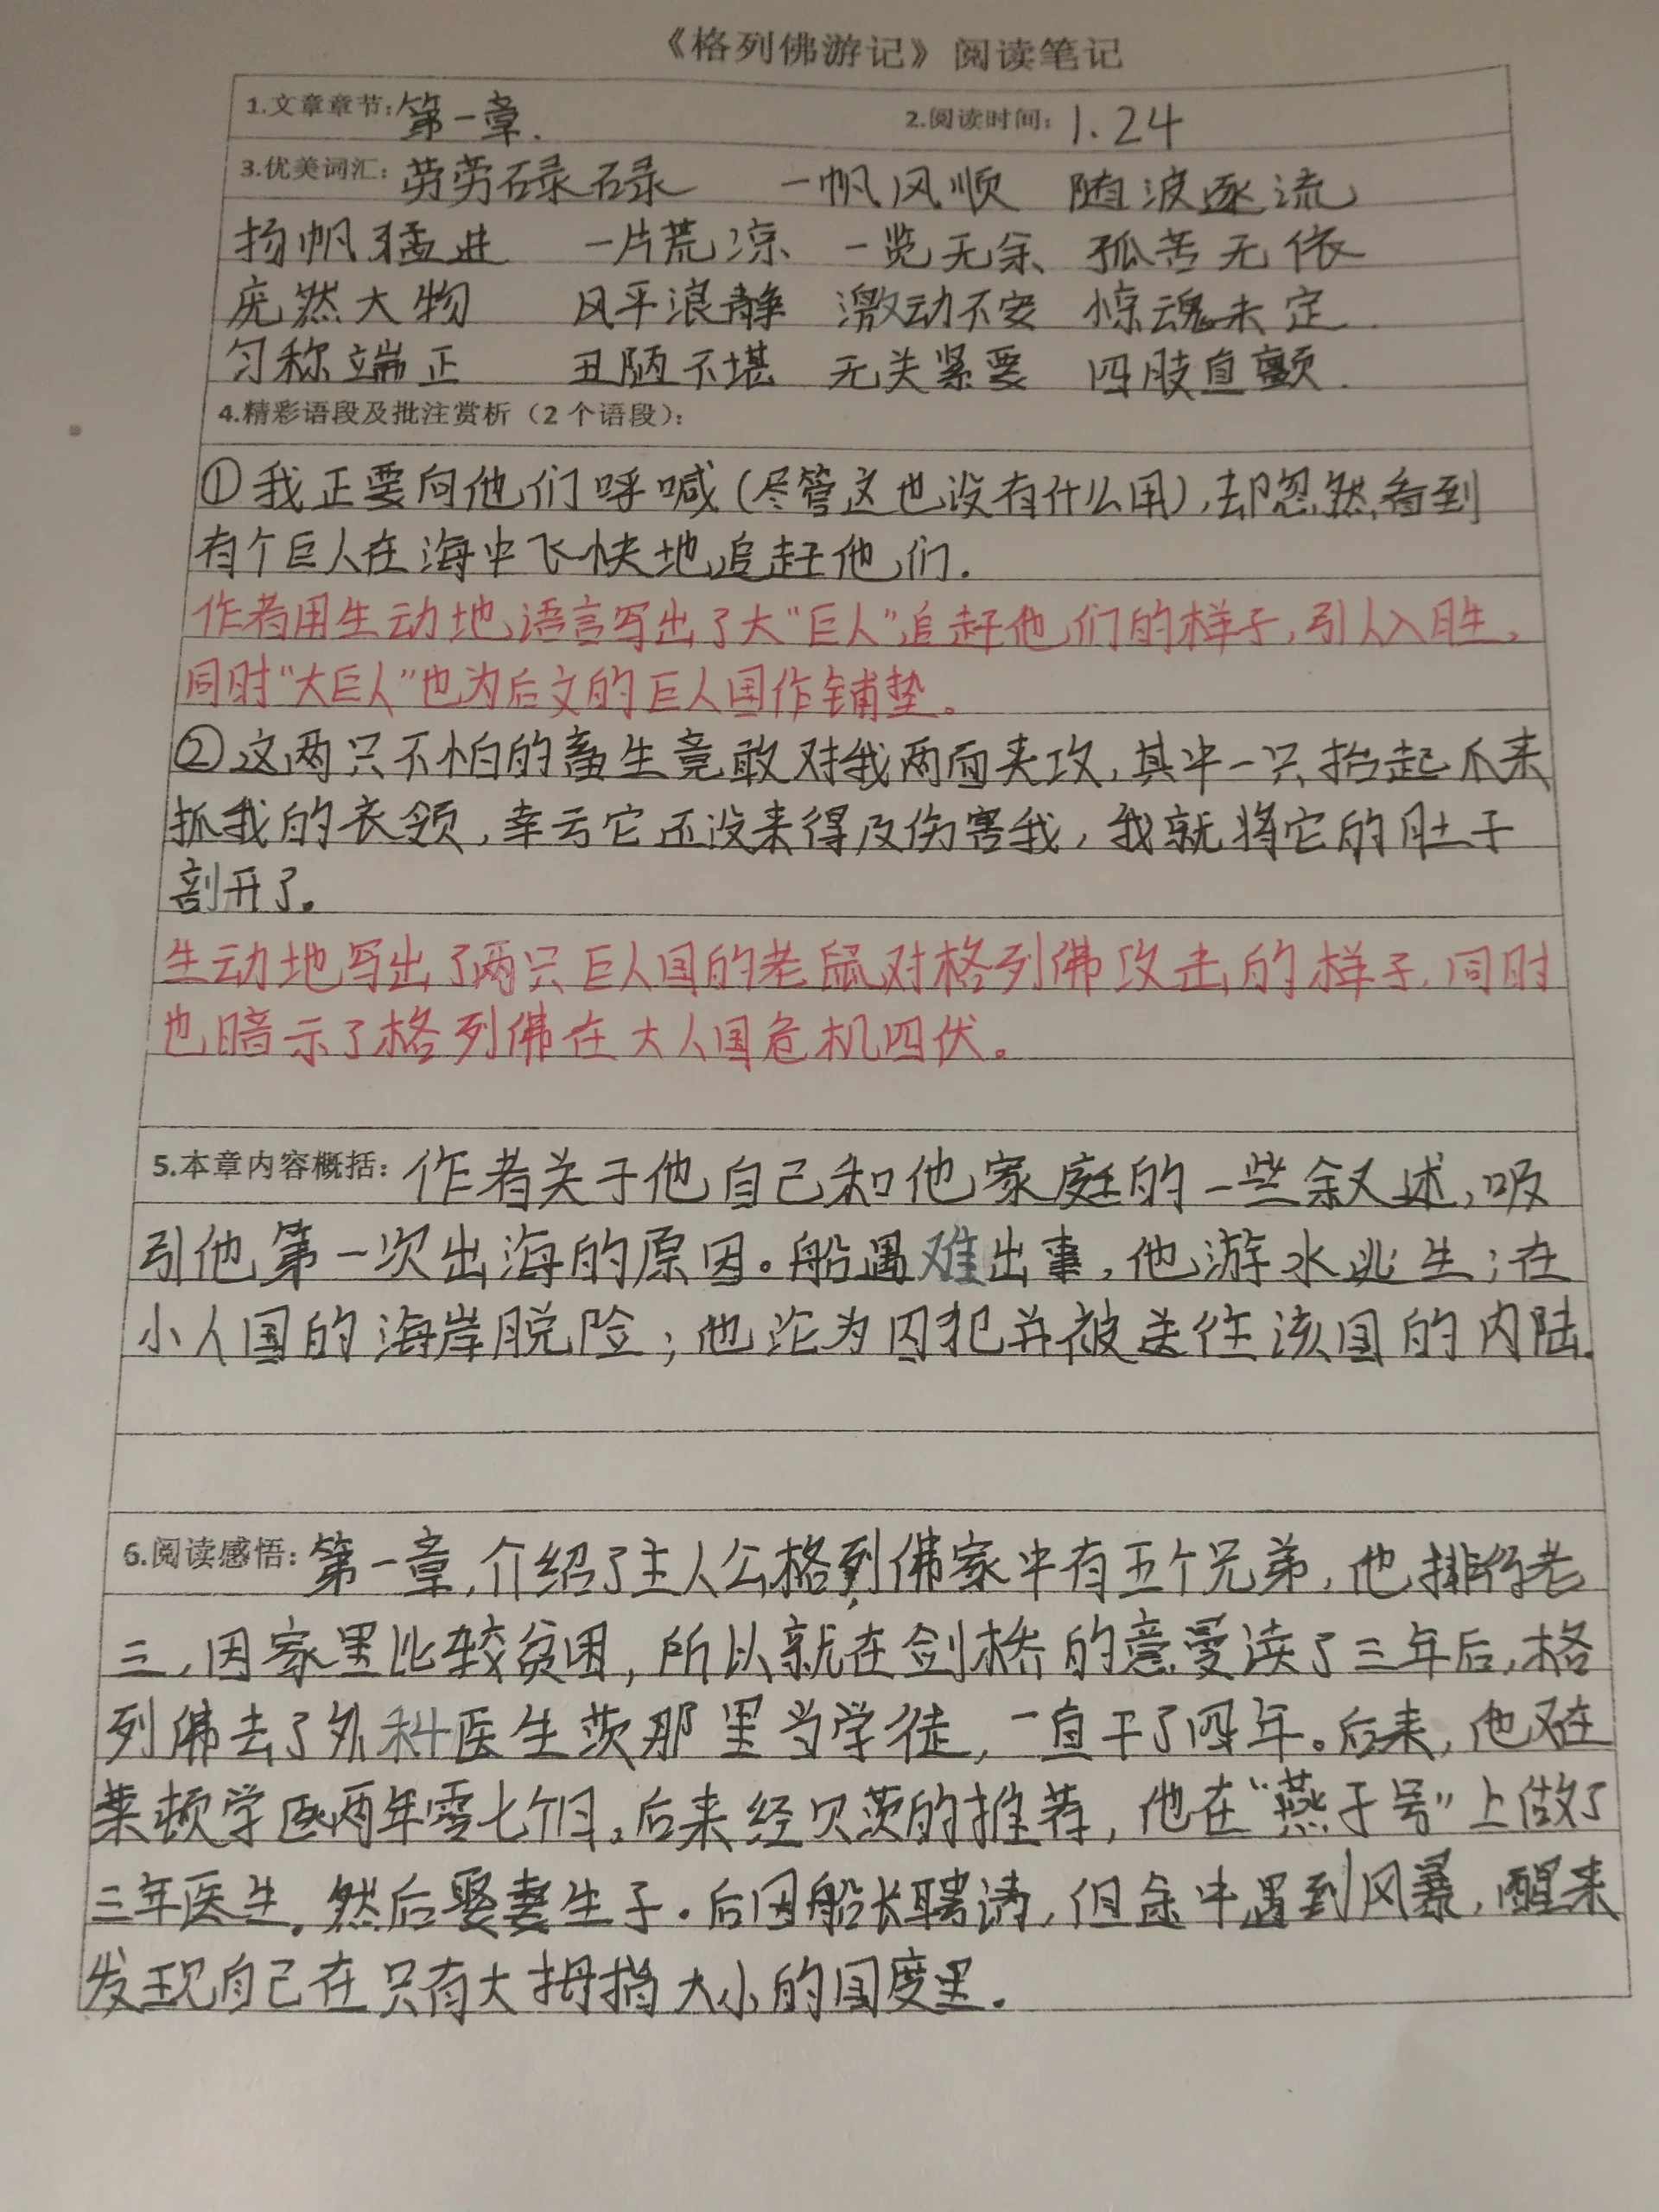 《格列佛游记》阅读笔记
1.文章章节: 第一章. 2.阅读时间: 1.24
3.优美词汇: 劳劳碌碌 一帆风顺 随波逐流
扬帆猛进 一片荒凉 一览无余 孤苦无依
庞然大物 风平浪静 激动不安 惊魂未定
匀称端正 丑陋不堪 无关紧要 四肢直颤.
4.精彩语段及批注赏析（2个语段）:
①我正要向他们呼喊(尽管这也没有什么用),却忽然看到
有个巨人在海中飞快地追赶他们.
作者用生动地语言写出了大“巨人”追赶他们的样子,引人入胜,
同时“大巨人”也为后文的巨人国作铺垫。
②这两只不怕的畜生竟敢对我两面夹攻,其中一只抬起爪来
抓我的衣领,幸亏它还没来得及伤害我,我就将它的肚子
剖开了。
生动地写出了两只巨人国的老鼠对格列佛攻击的样子,同时
也暗示了格列佛在大人国危机四伏。
5.本章内容概括: 作者关于他自己和他家庭的一些叙述,吸
引他第一次出海的原因。船遇难出事,他游水逃生;在
小人国的海岸脱险;他沦为囚犯并被送往该国的内陆.
6.阅读感悟: 第一章,介绍了主人公格列佛家中有五个兄弟,他排行老
三,因家里比较贫困,所以就在剑桥的意曼读了三年后,格
列佛去了外科医生茨那里当学徒,一直干了四年。后来,他又在
莱顿学医两年零七个月。后来经贝茨的推荐,他在“燕子号”上做了
三年医生。然后娶妻生子.后因船长聘请,但途中遇到风暴,醒来
发现自己在只有大拇指大小的国度里.